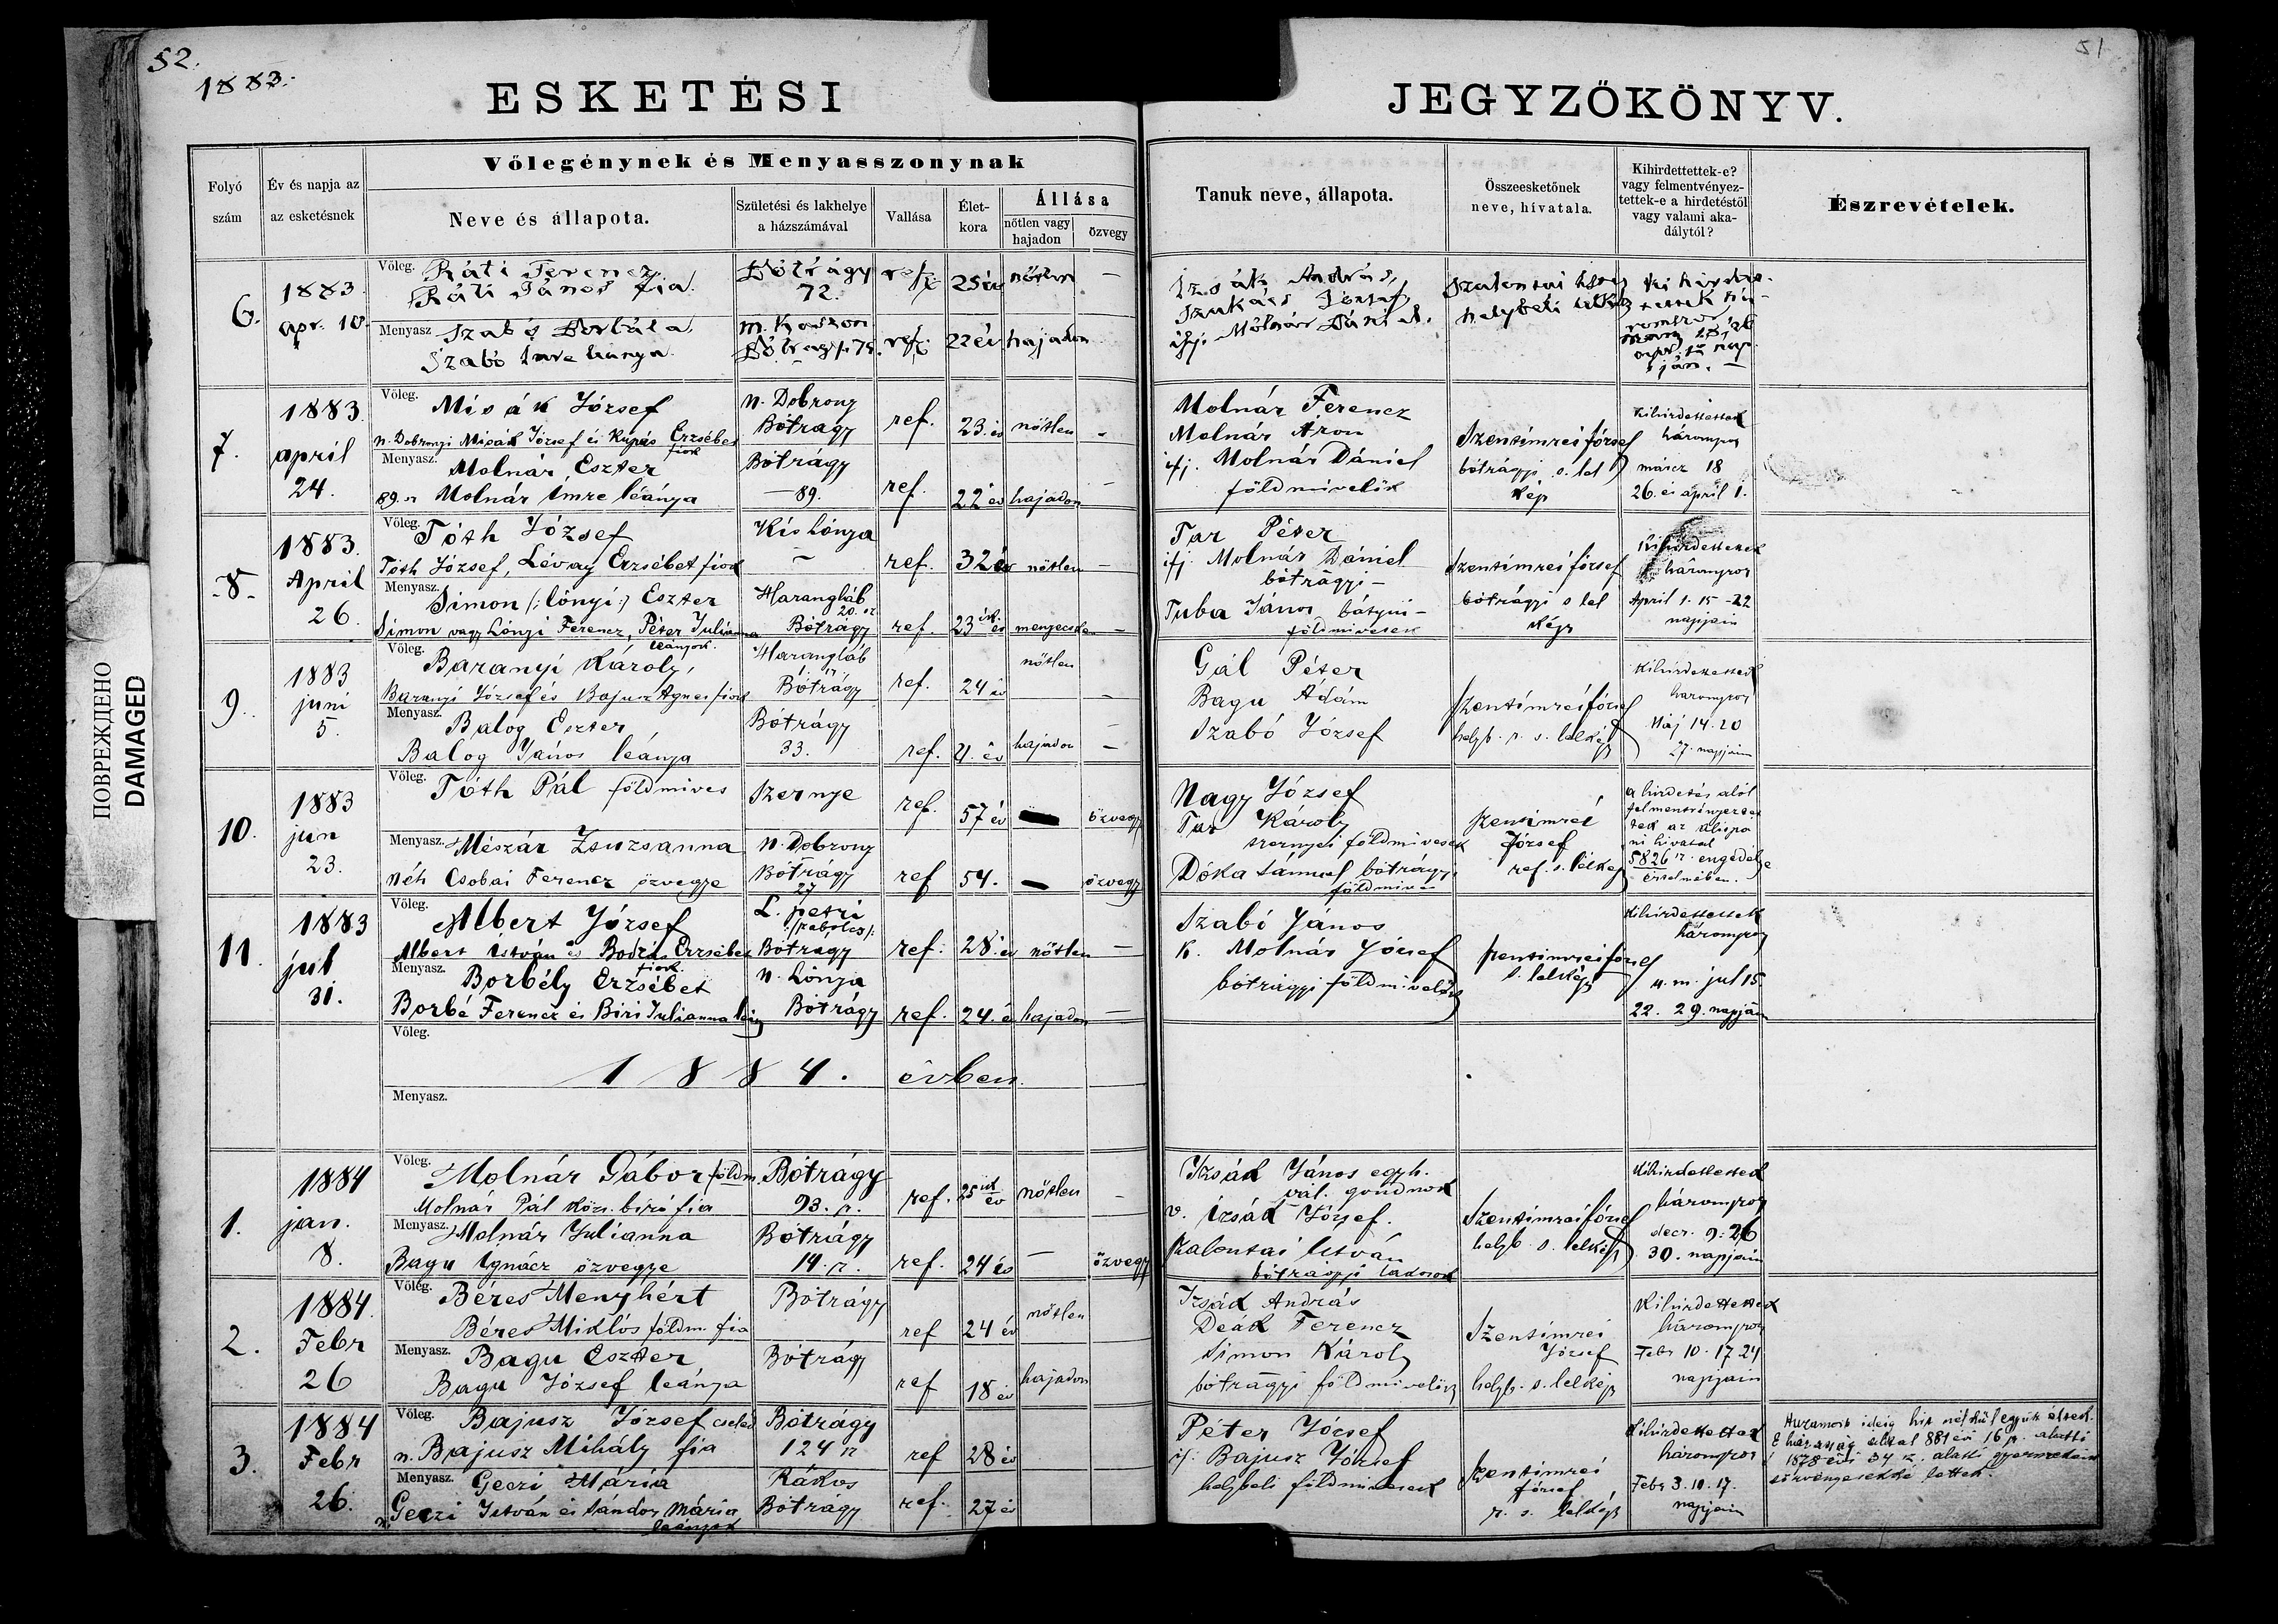 52.
1883.
51
ESKETÉSI JEGYZŐKÖNYV.
ПОВРЕЖДЕНО
DAMAGED
Folyó szám
Év és napja az az esketésnek
Vőlegénynek és Menyasszonynak
Neve és állapota.
Születési és lakhelye a házszámával
Vallása
Élet-kora
Állása
nőtlen vagy hajadon
özvegy
Tanuk neve, állapota.
Összeesketőnek neve, hívatala.
Kihirdettettek-e? vagy felmentvényez-tettek-e a hirdetéstől vagy valami aka-dálytól?
Észrevételek.
6.
1883
apr. 10.
Vőleg. Ráti Ferencz
Ráti János fia.
Bótrágy
72.
ref.
25 év
nőtlen
—
Menyasz. Szabó Borbála
Szabó Imre leánya.
m. Kaszon
ref.
22 év
hajadon
Izsák András,
Szakács József,
ifj. Molnár Dániel.
helybeli
7.
1883
april
24.
Vőleg. Misák József
n. Dobronyi Misák József és Kupás Erzsébet
fiok
n. Dobrony
Bótrágy
ref.
23. év
nőtlen
Menyasz. Molnár Eszter
89. Molnár Imre leánya
Bótrágy
— 89.
ref.
22 év
hajadon
Molnár Ferencz
Molnár Áron
ifj. Molnár Dániel
földmivelők
Szentimrei József
bótrágyi s. lel
kép
Kihirdettettek
háromszor
márcz 18
26. és april 1.
-8-
1883.
April
26.
Vőleg. Tóth József
Tóth József, Lévay Erzsébet fiok
Kis Lónya
ref.
32 év
nőtlen
—
Menyasz. Simon (:lónyi:) Eszter
Simon vagy Lónyi Ferencz, Péter Julianna
leányok.
Harangláb
Bótrágy
ref.
23
—
Tar Péter
ifj. Molnár Dániel
bótrágyi —
Tuba János bátyui —
földmivesek
Szentimrei József
bótrágyi s lel
kép
Kihirdettettek
háromszor
April 1. 15 - 22
napjain
9.
1883
juni
5.
Vőleg. Baranyi Károly,
Baranyi József és Bajusz Ágnes fiok
Harangláb
Bótrágy
ref.
24 év
nőtlen
—
Menyasz. Balog Eszter
Balog János leánya
Bótrágy
33.
ref.
21. év
hajadon
—
Gál Péter
Bagu Ádám
Szabó József
Szentimrei József
helyb. r. s. lelkép
Kihirdettettek
háromszor
Máj 14. 20
27. napjain
10.
1883
jun
23.
Vőleg. Tóth Pál földmives
Szernye
ref.
57 év
özvegy
Menyasz. Mészár Zsuzsanna
néh Csobai Ferencz özvegye
n. Dobrony
Bótrágy
27
ref
54.
—
özvegy
Nagy József
Tar Károly
szernyei földmivesek
Dóka Sámuel bótrágyi
földmives
Szentimrei
József
ref. s. lelkép
a hirdetés alól
felmentvényeztet
tek az alispá
ni hivatal
5826 engedélye
értelmében.
11.
1883
jul
31.
Vőleg. Albert József
Albert István és Bodzás Erzsébet
fiok.
L. petri
/:szabolcs:/
Bótrágy
ref.
28. év
nőtlen
—
Menyasz. Borbély Erzsébet
Borbé Ferencz és Biri Julianna
n. Lónya
Bótrágy
ref.
24. é
hajadon
—
Szabó János
k. Molnár József
bótrágyi földmivelők
Szentimrei József
s. lelkép
Kihirdettettek
háromszor
u. m. jul 15.
22. 29. napjain
Vőleg.
1884. évben
Menyasz.
1.
1884
jan.
8.
Vőleg. Molnár Gábor földm.
Molnár Pál közs. biró fia
Bótrágy
93.
ref.
25
év
nőtlen
—
Menyasz. Molnár Julianna
Bagu Ignácz özvegye
Bótrágy
14.
ref.
24 év
—
özvegy
Izsák János egyh.
vál. gondnok
v. Izsák József.
Szalontai István
bótrágyi lakosok
Szentimrei József
helyb. s. lelkép
Kihirdettettek
háromszor
decz. 9. 26
30. napjain
2.
1884.
Febr
26
Vőleg. Béres Menyhért
Béres Miklós földm. fia
Bótrágy
ref
24 év
nőtlen
Menyasz. Bagu Eszter
Bagu József leánya
Bótrágy
ref
18 év
hajadon
Izsák András
Deák Ferencz
Simon Károly
bótrágyi földmivelők
Szentimrei
József
helyb. s. lelkép
Kihirdettettek
háromszor
Febr 10. 17. 24
napjain
3.
1884
Febr
26.
Vőleg. Bajusz József cseléd
n. Bajusz Mihály fia
Bótrágy
124
ref
28 év
Menyasz. Geczi Mária
n. Geczi István és Sándor Mária
leányok
Rákos
Bótrágy
ref.
27 év
Péter József
ifj. Bajusz József
helybeli földmivesek
Szentimrei
József
r. s. lelkép
Kihirdettettek
háromszor
Febr 3. 10. 17.
napjain
Huzamos ideig hit nélkül együtt éltek.
E házasság által 881 évi 16 sz. alatti
1878 évi 34 sz. alatti gyermekeik
törvényesekké lettek.